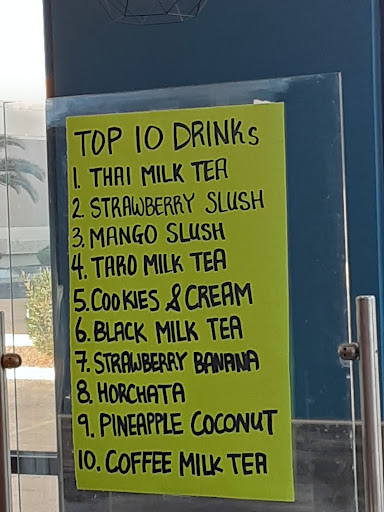 TOP 10 DRINKs
1. THAI MILK TEA
2. STRAWBERRY SLUSH
3. MANGO SLUSH
4. TARO MILK TEA
5. COOKIES & CREAM
6. BLACK MILK TEA
7. STRAWBERRY BANANA
8. HORCHATA
9. PINEAPPLE COCONUT
10. COFFEE MILK TEA